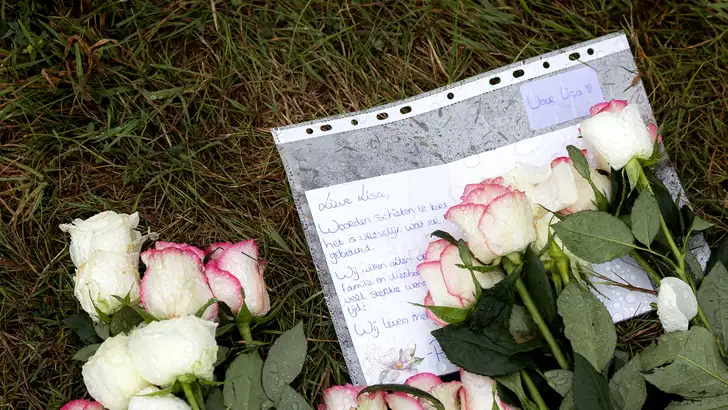 Voor Lisa ♡
Lieve Lisa,
Woorden schieten te kort
het is vreselijk wat er
gebeurd.
Wij willen allen
familie en
veel sterkte wen
tijd!
Wij leven me